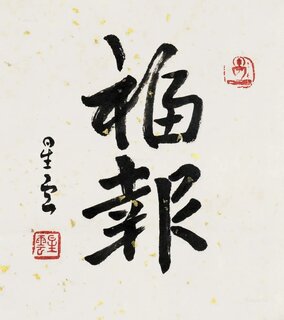 福報
星雲
星雲